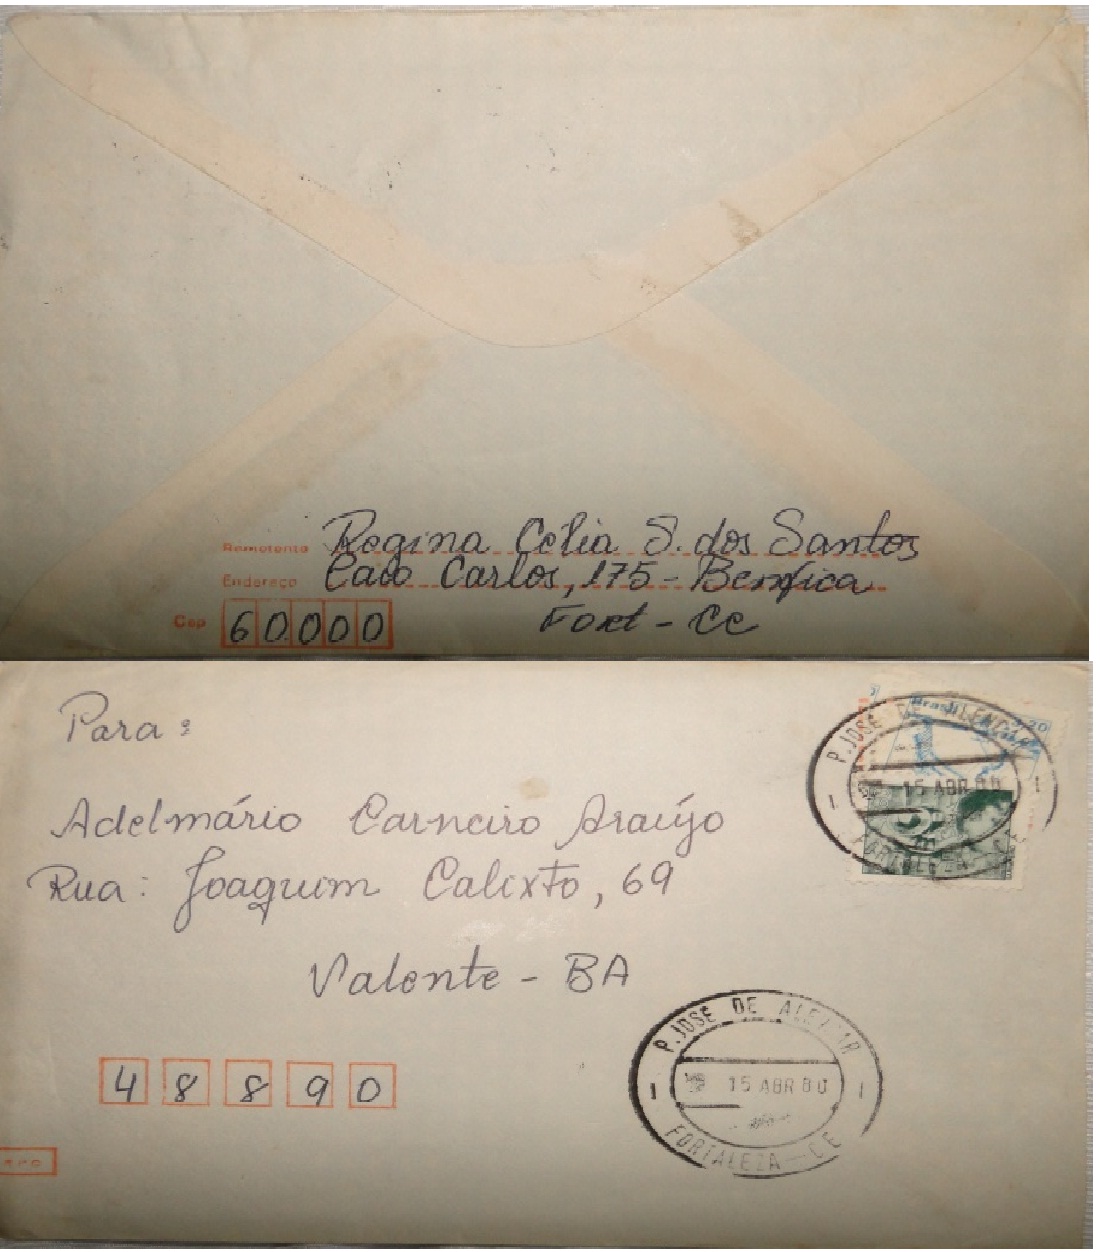 Remetente Regina Célia S. dos Santos
Endereço Caio Carlos, 175 - Benfica
Cep 60.000 Fort - Ce
Para:
Brasil
P. JOSÉ DE ALENCAR
1 15 ABR 80 1
FORTALEZA - CE
Adelmário Carneiro Araújo
Rua: Joaquim Calixto, 69
Valente - BA
P. JOSÉ DE ALENCAR
1 15 ABR 80 1
FORTALEZA - CE
48890